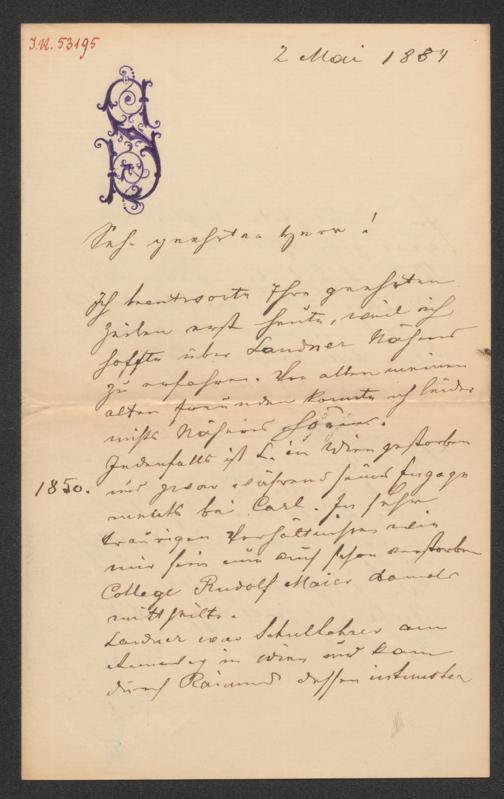 I.N. 53195
2 Mai 1884
S
Sehr geehrter Herr!
Ich beantworte Ihre geehrten
Zeilen erst heute, weil ich
hoffte über Landner Näheres
zu erfahren. Von allen meinen
alten Freunden konnte ich leider
nichts Näheres hören.
Jedenfalls ist L. in Wien gestorben
1850. und zwar während seines Engage
ments bei Carl. In sehr
traurigen Verhältnissen wie
mir sein nun auch schon verstorbener
College Rudolf Maier damals
mittheilte.
Landner war Schullehrer am
in Wien und kam
durch Raimund dessen intimster